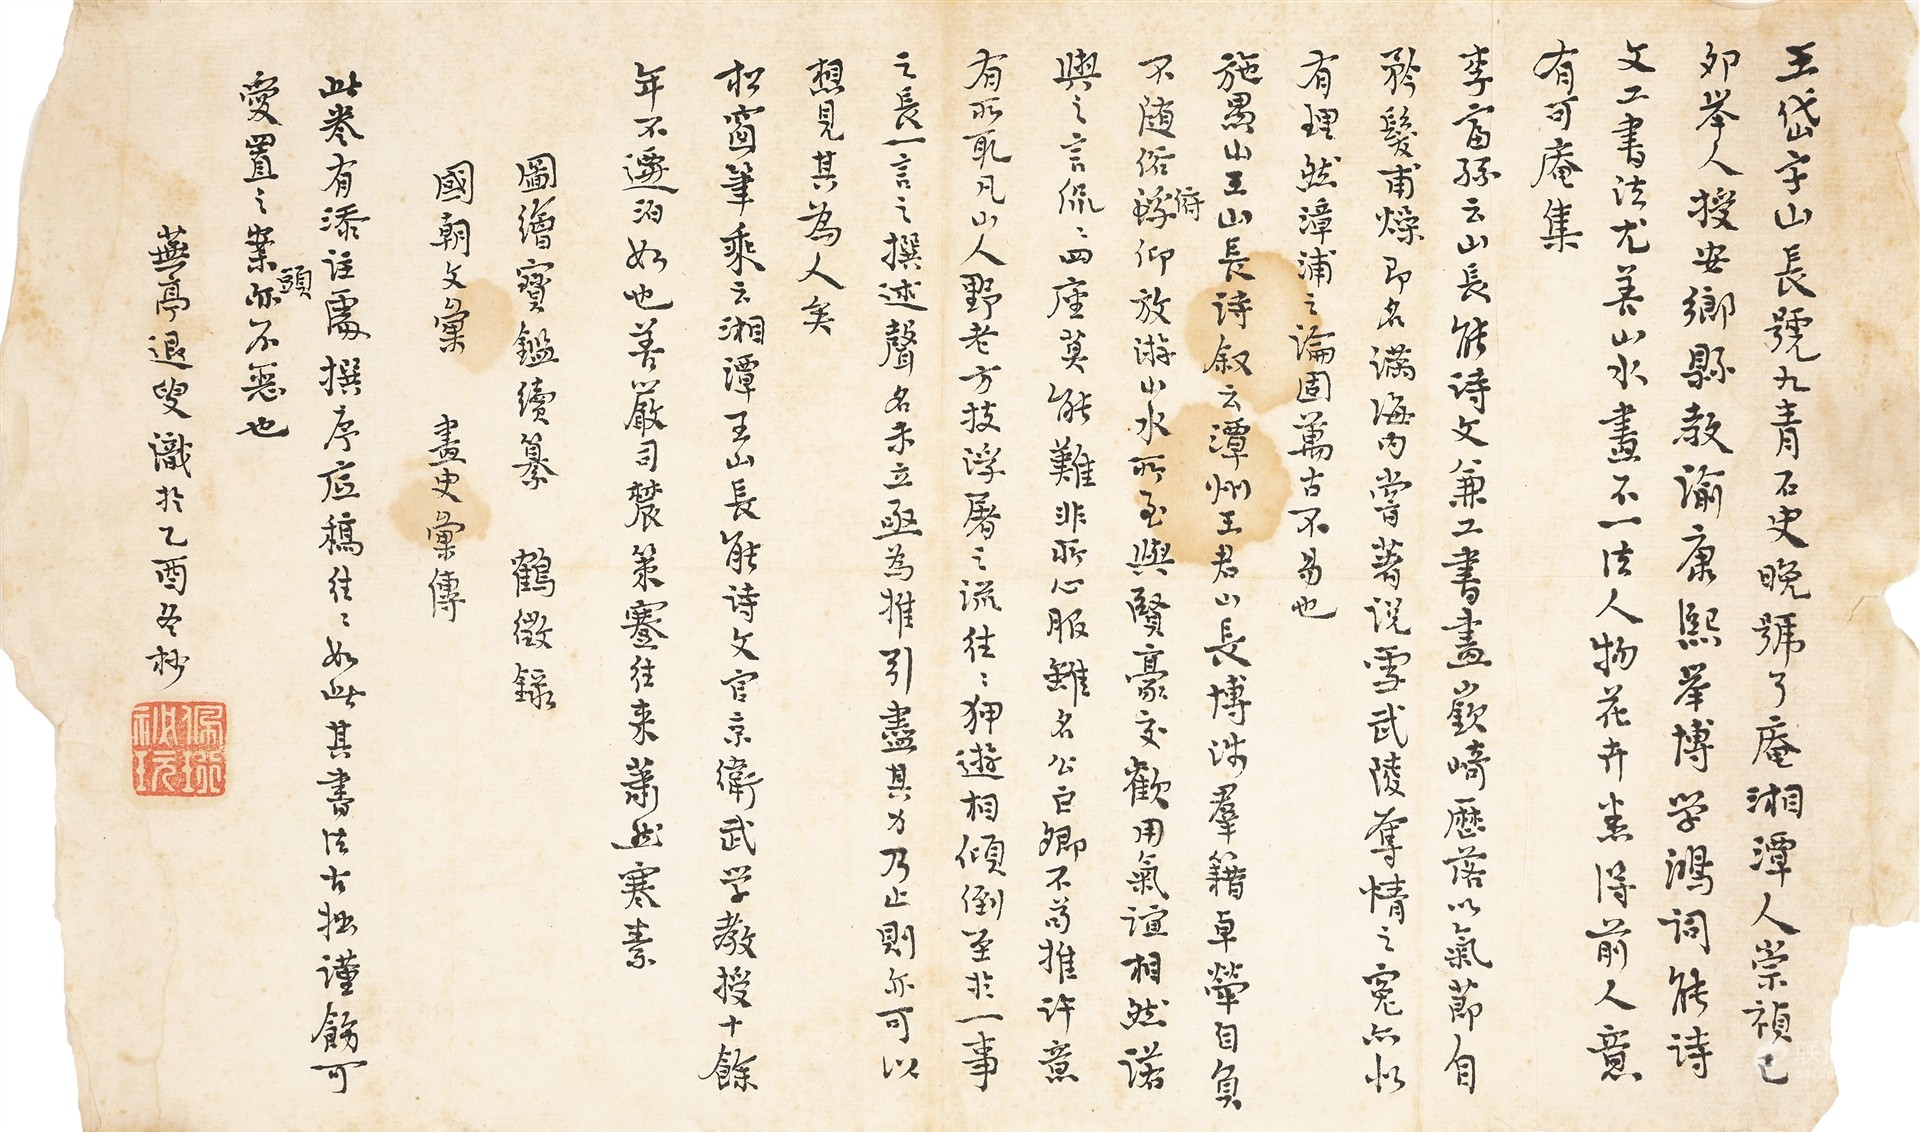 王岱字山長號九青石史晚號了庵湘潭人崇禎己
卯舉人授安鄉縣教諭康熙舉博学鴻詞能詩
文工書法尤善山水畫不一法人物花卉悉得前人意
有可庵集
李富孫云山長能詩文兼工書畫嶔崎歷落以氣節自
矜髮甫燥即名滿海内嘗著说雪武陵奪情之寃亦似
有理然漳浦之論固萬古不易也
施愚山王山長詩叙云潭州王君山長博涉羣籍卓犖自負
不随俗俯仰放游山水所至與賢豪交歡用氣誼相然諾
與之言侃〻四座莫能難非所心服雖名公巨卿不苟推许意
有所取凡山人野老方技浮屠之流往〻狎遊相傾倒至於一事
之長一言之撰述聲名未立亟為推引盡其力乃止則亦可以
想見其為人矣
松窗筆乘云湘潭王山長能诗文官京衛武学教授十餘
年不遷泊如也善嚴司農策蹇往来蕭然寒素
圖繪寶鑑續纂 鶴徵錄
國朝文彙 畫史彙傳
此卷有添注處撰序應稿往〻如此其書法古拙謹飭可
愛置之案頭亦不惡也
蕪亭退叟識於乙酉冬杪